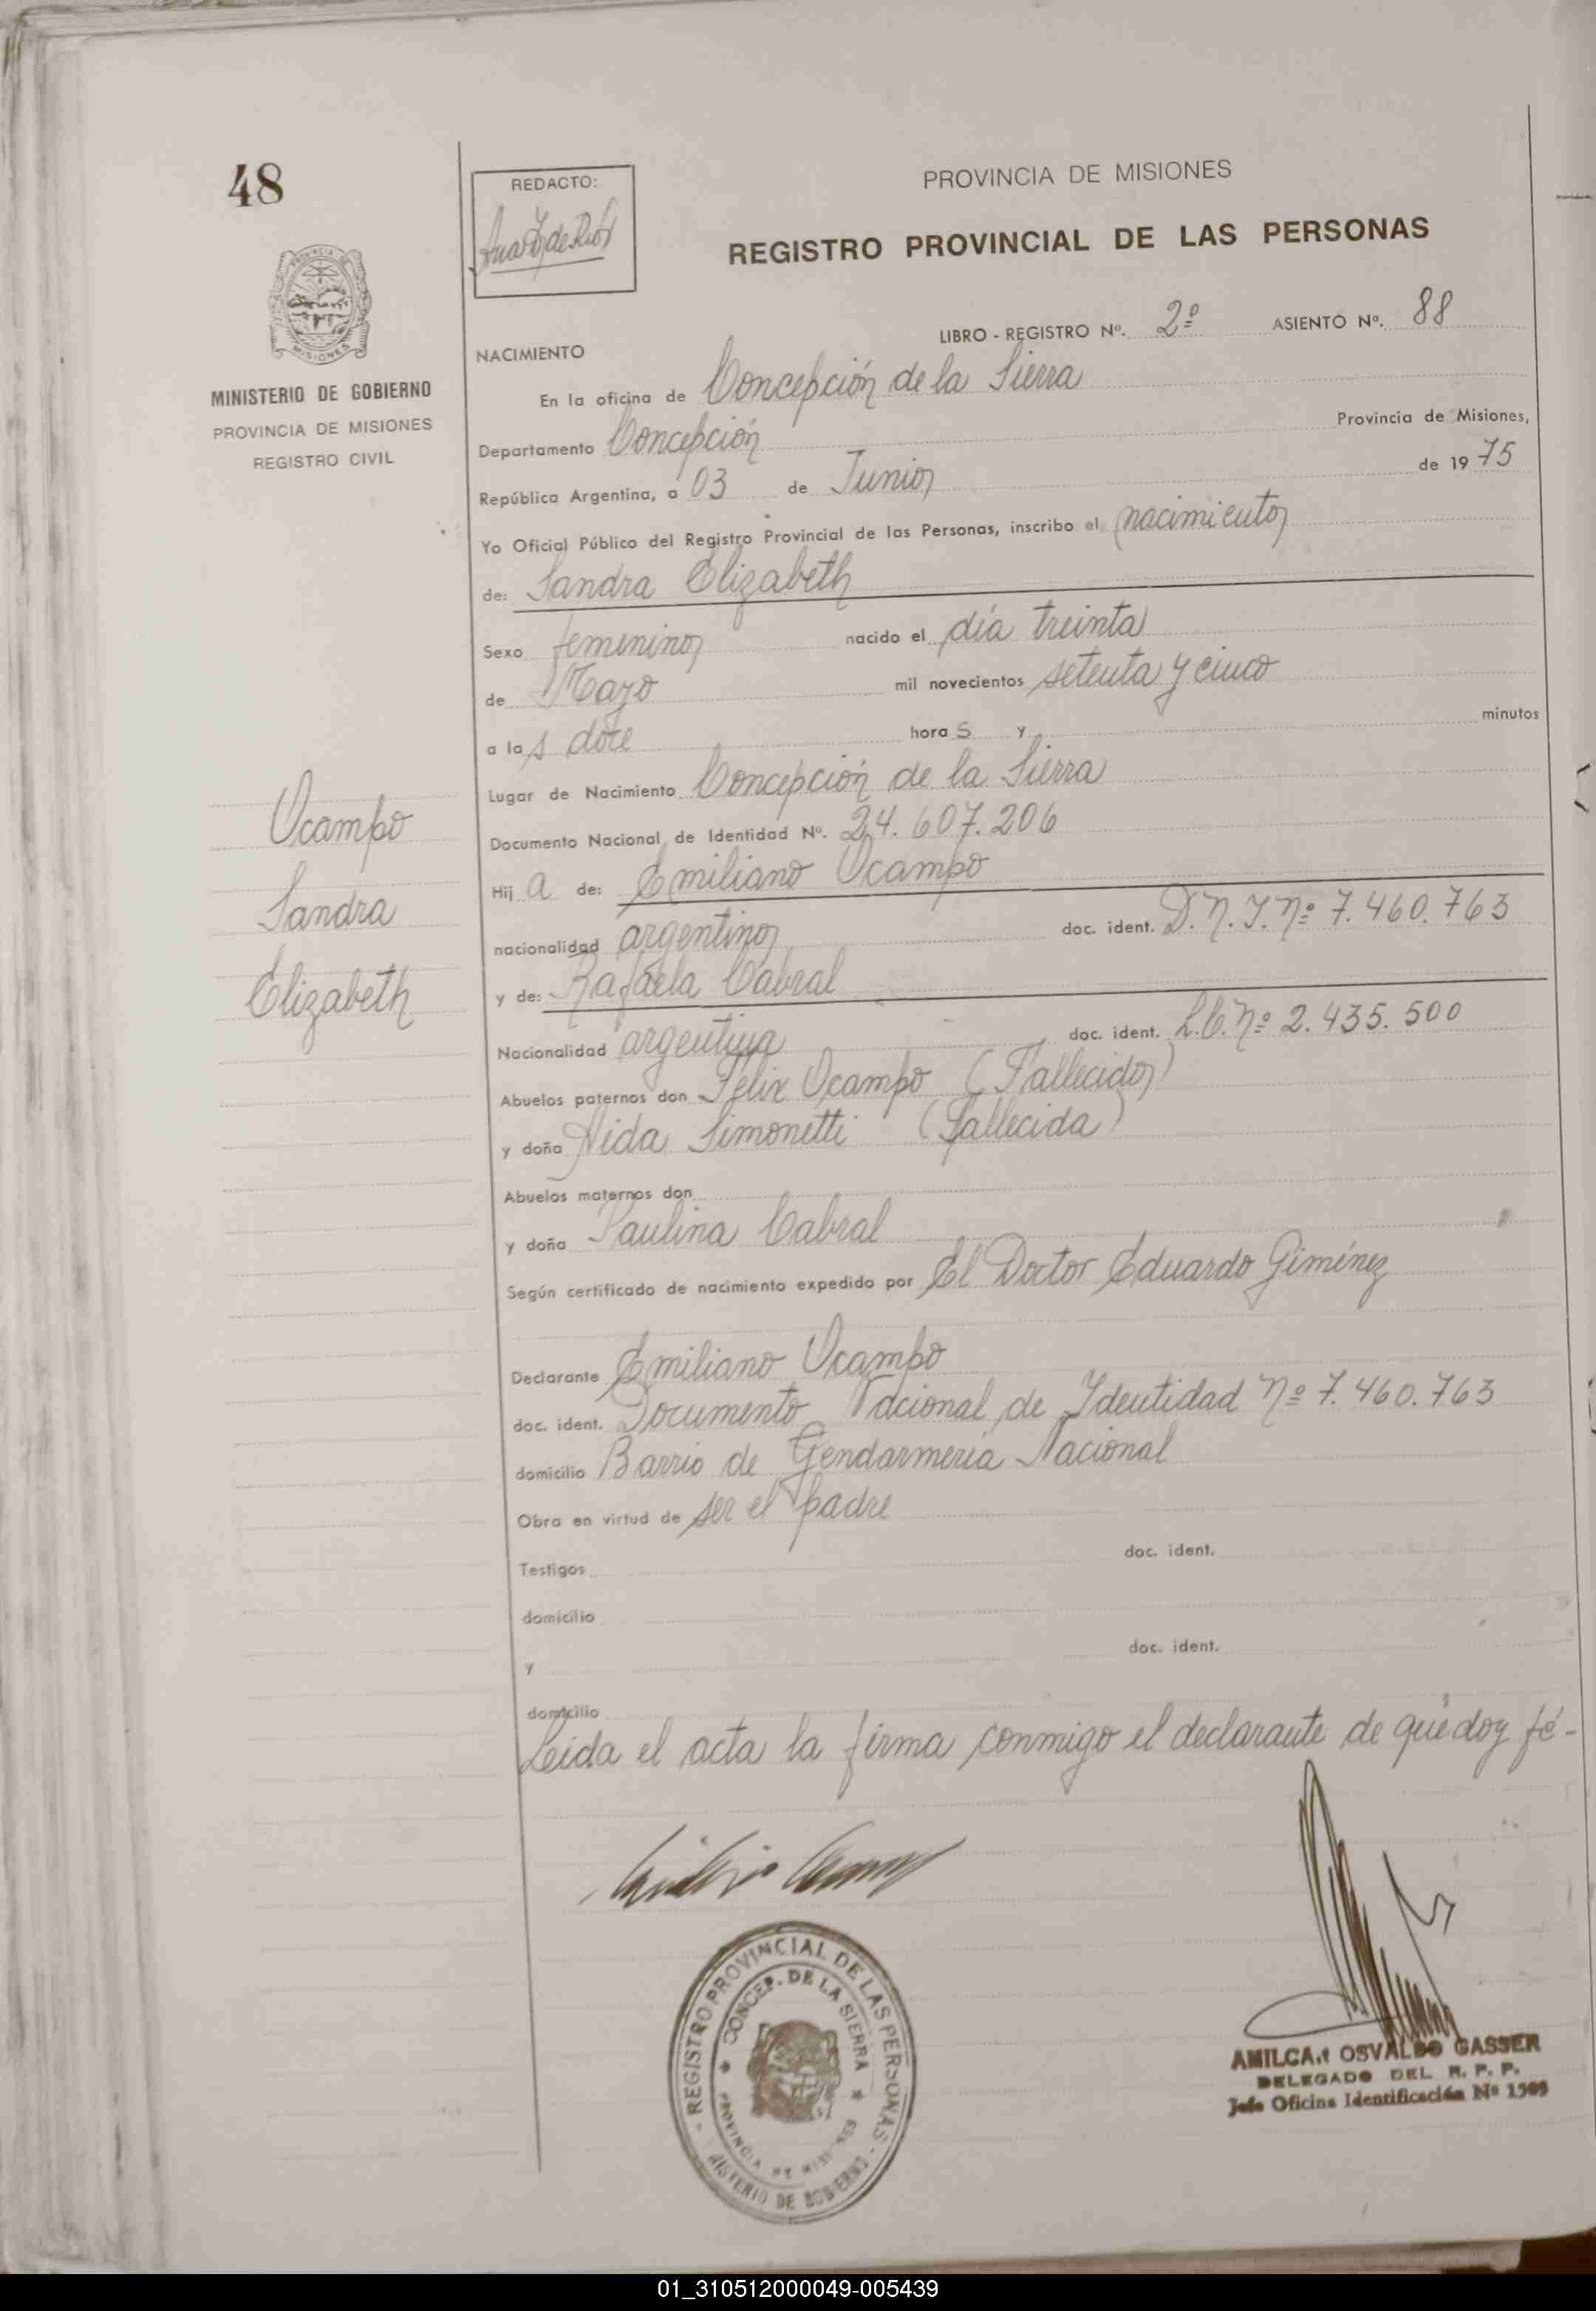 48
REDACTO:
PROVINCIA DE MISIONES
REGISTRO PROVINCIAL DE LAS PERSONAS
MISIONES
MINISTERIO DE GOBIERNO
PROVINCIA DE MISIONES
REGISTRO CIVIL
LIBRO - REGISTRO Nº. 2º ASIENTO Nº. 88
NACIMIENTO
En la oficina de Concepción de la Sierra
Departamento Concepción Provincia de Misiones,
República Argentina, a 03 de Junio de 19 75
Yo Oficial Público del Registro Provincial de las Personas, inscribo el nacimiento
de: Sandra Elizabeth
Sexo femenino nacido el día treinta
de Mayo mil novecientos setenta y cinco
a las doce horas y minutos
Lugar de Nacimiento Concepción de la Sierra
Documento Nacional de Identidad Nº. 24.607.206
Hij a de: Emiliano Ocampo
nacionalidad argentino doc. ident. D.N.I. Nº 7.460.763
y de: Rafaela Cabral
Nacionalidad argentina doc. ident. L.C. Nº 2.435.500
Abuelos paternos don Félix Ocampo (Fallecido)
y doña Aida Simonetti (Fallecida)
Abuelos maternos don
y doña Paulina Cabral
Según certificado de nacimiento expedido por El Doctor Eduardo Giménez
Declarante Emiliano Ocampo
doc. ident. Documento Nacional de Identidad Nº 7.460.763
domicilio Barrio de Gendarmería Nacional
Obra en virtud de ser el padre
Testigos doc. ident.
domicilio
y doc. ident.
domicilio
Leida el acta la firma conmigo el declarante de que doy fé-
Ocampo
Sandra
Elizabeth
REGISTRO PROVINCIAL DE LAS PERSONAS
CONCEP. DE LA SIERRA
PROVINCIA DE MISIONES
MINISTERIO DE GOBIERNO
AMILCAR OSVALDO GASSER
DELEGADO DEL R. P. P.
Jefe Oficina Identificación Nº 1509
01_310512000049-005439